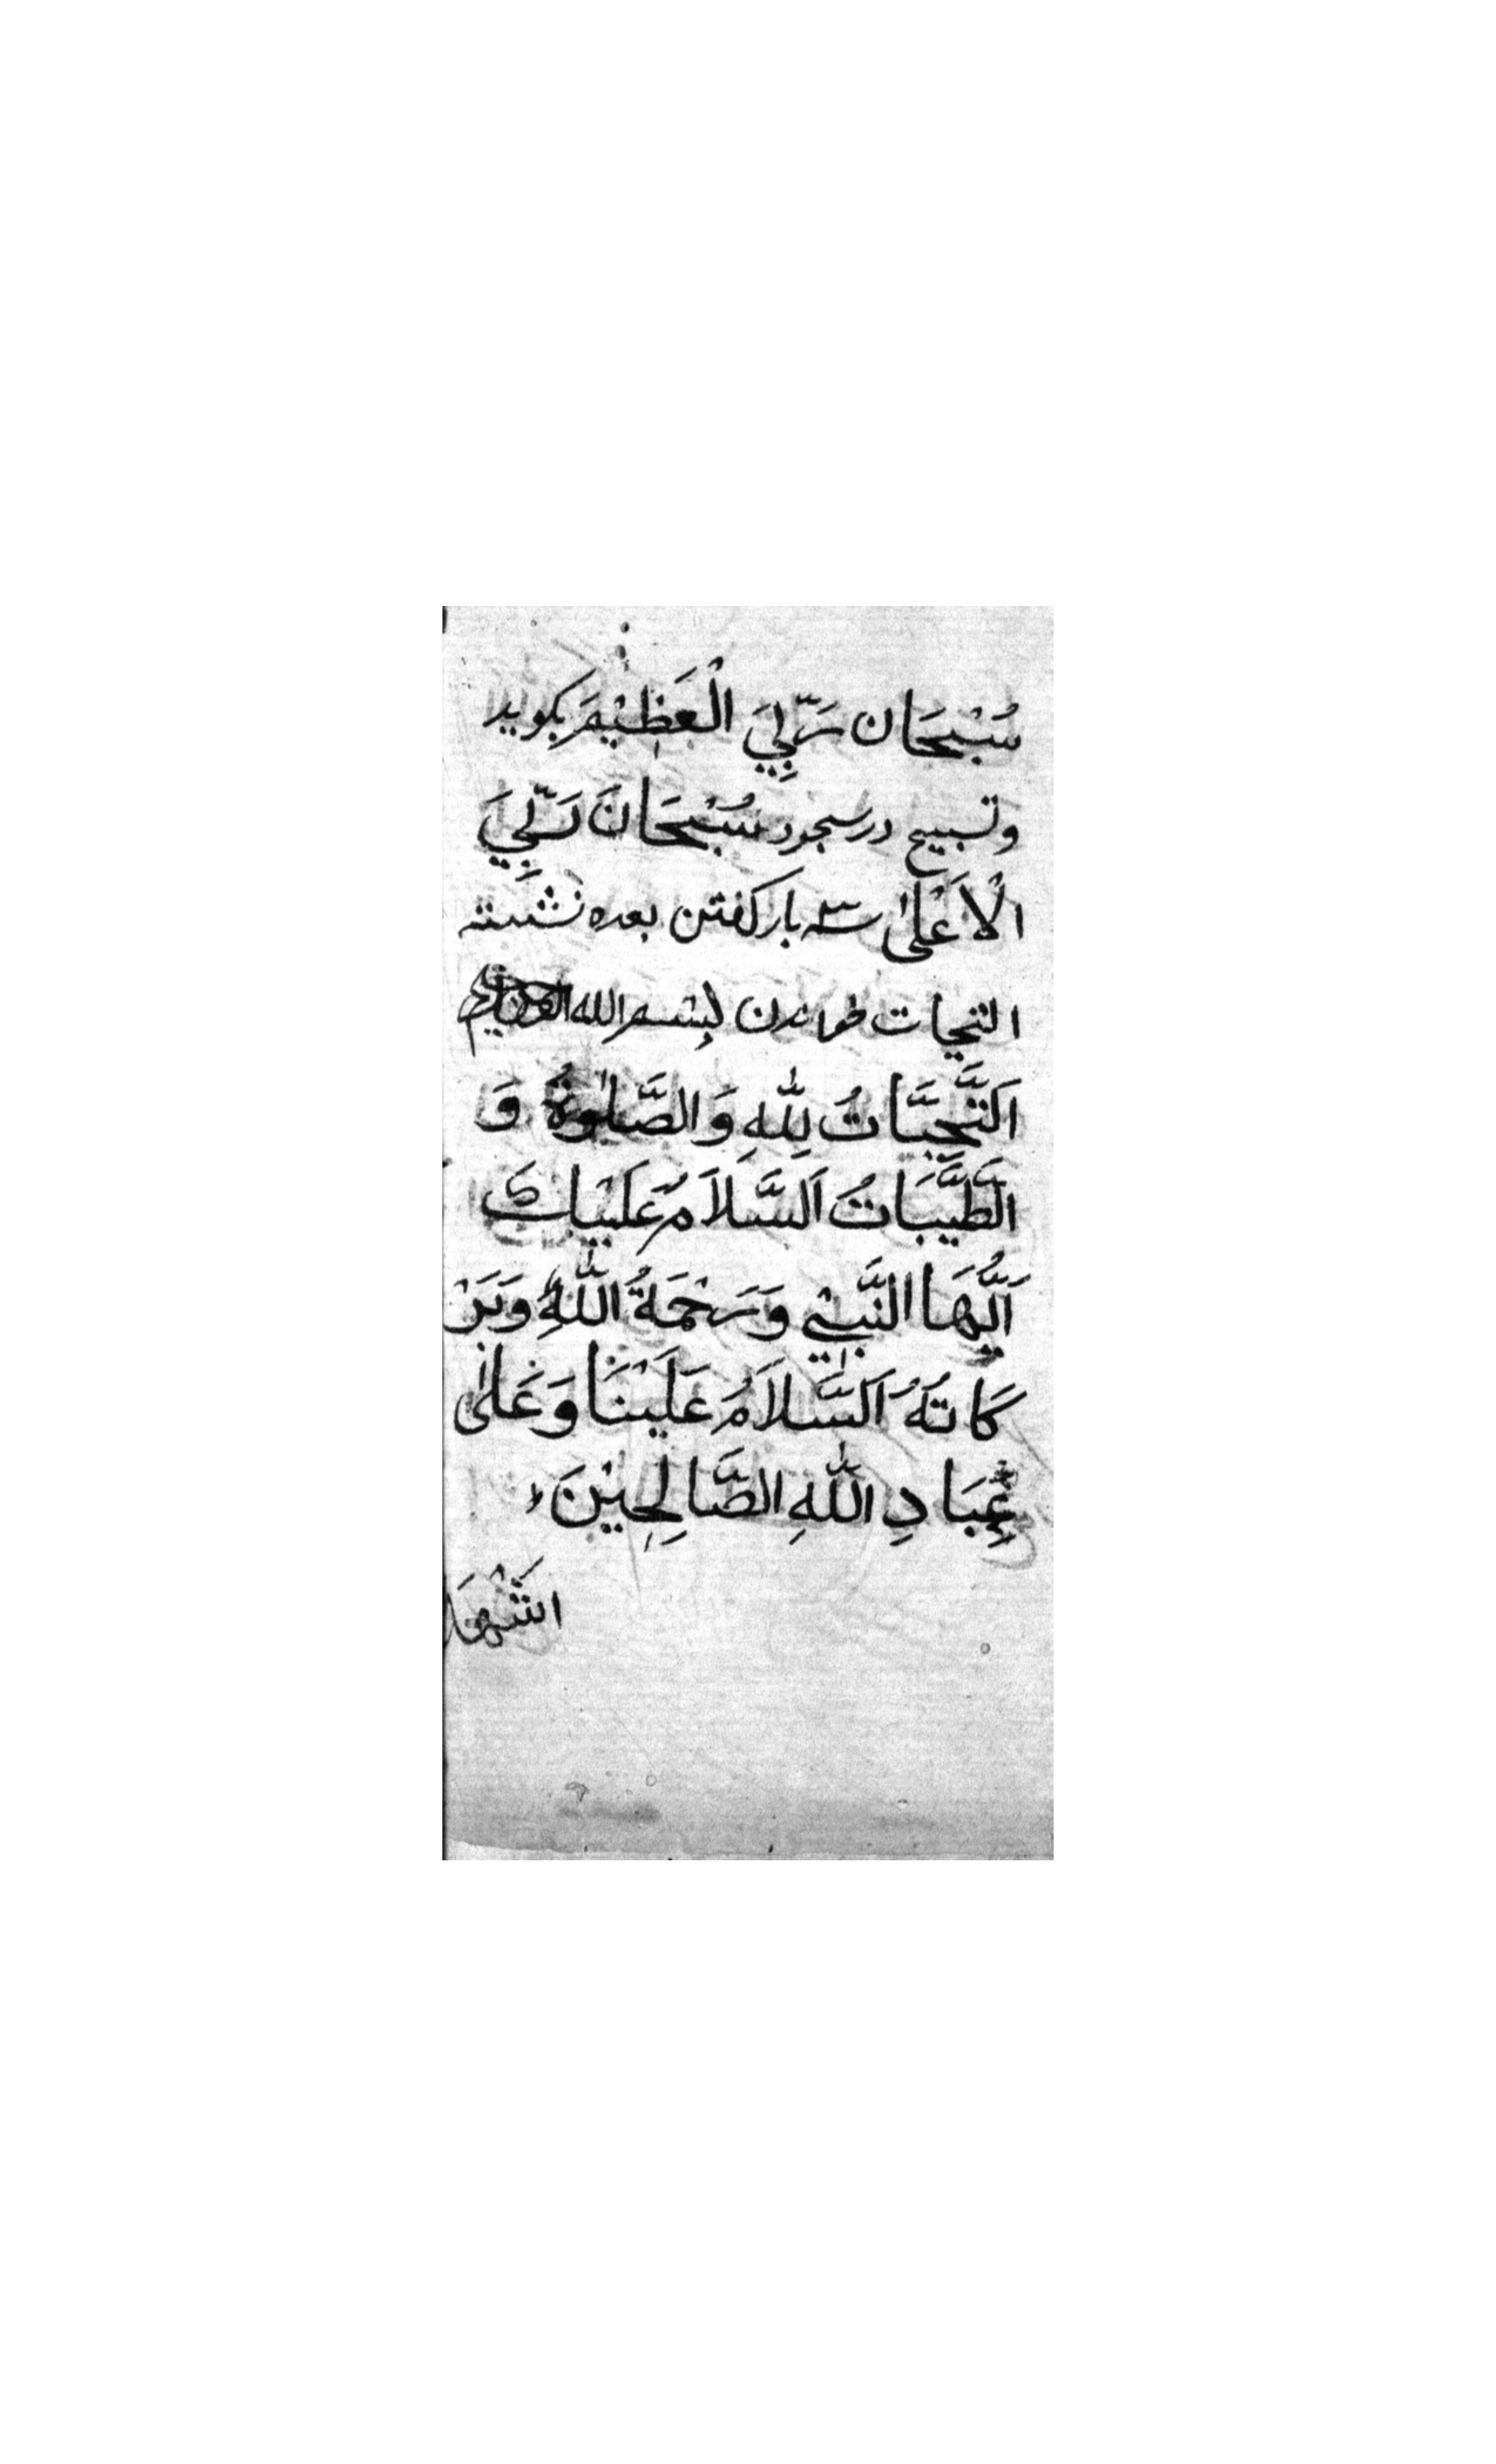 سُبْحَان رَبِّيَ الْعَظِيْمَ بكويد
وتسبيح در سجود سُبْحَانَ رَبِّيَ
الْاَعْلٰى سه بار كفتن بعده نشسته
التحيات خواندن بسم الله الرحمن الرحيم
اَلتَّحِيَّاتُ لِلّٰهِ وَالصَّلٰوةُ وَ
الطَّيِّبَاتُ اَلسَّلَامُ عَلَيْكَ
اَيُّهَا النَّبِيْ وَرَحْمَةُ اللّٰهِ وَبَرَ
كَاتُهُ اَلسَّلَامُ عَلَيْنَا وَعَلٰى
عِبَادِ اللّٰهِ الصَّالِحِيْنَ
اشْهَد